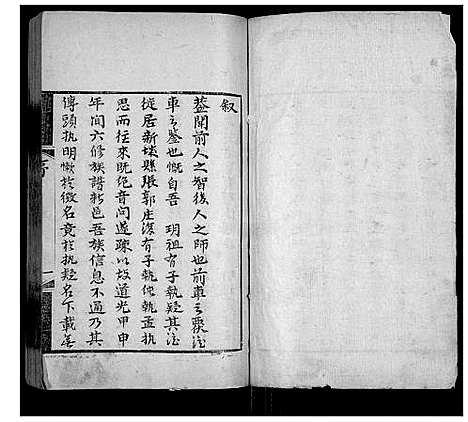 叙
蓋聞前人之智後人之師也前車之覆後
車之鑒也慨自吾 玥祖有子執疑其後
從居新埭縣張郭庄復有子執使執孟執
思而往來既絕音問遂疎以故道光甲申
年間六修族譜新邑吾族信息不通乃其
傳頭執明懒於微名竟於執疑名下載